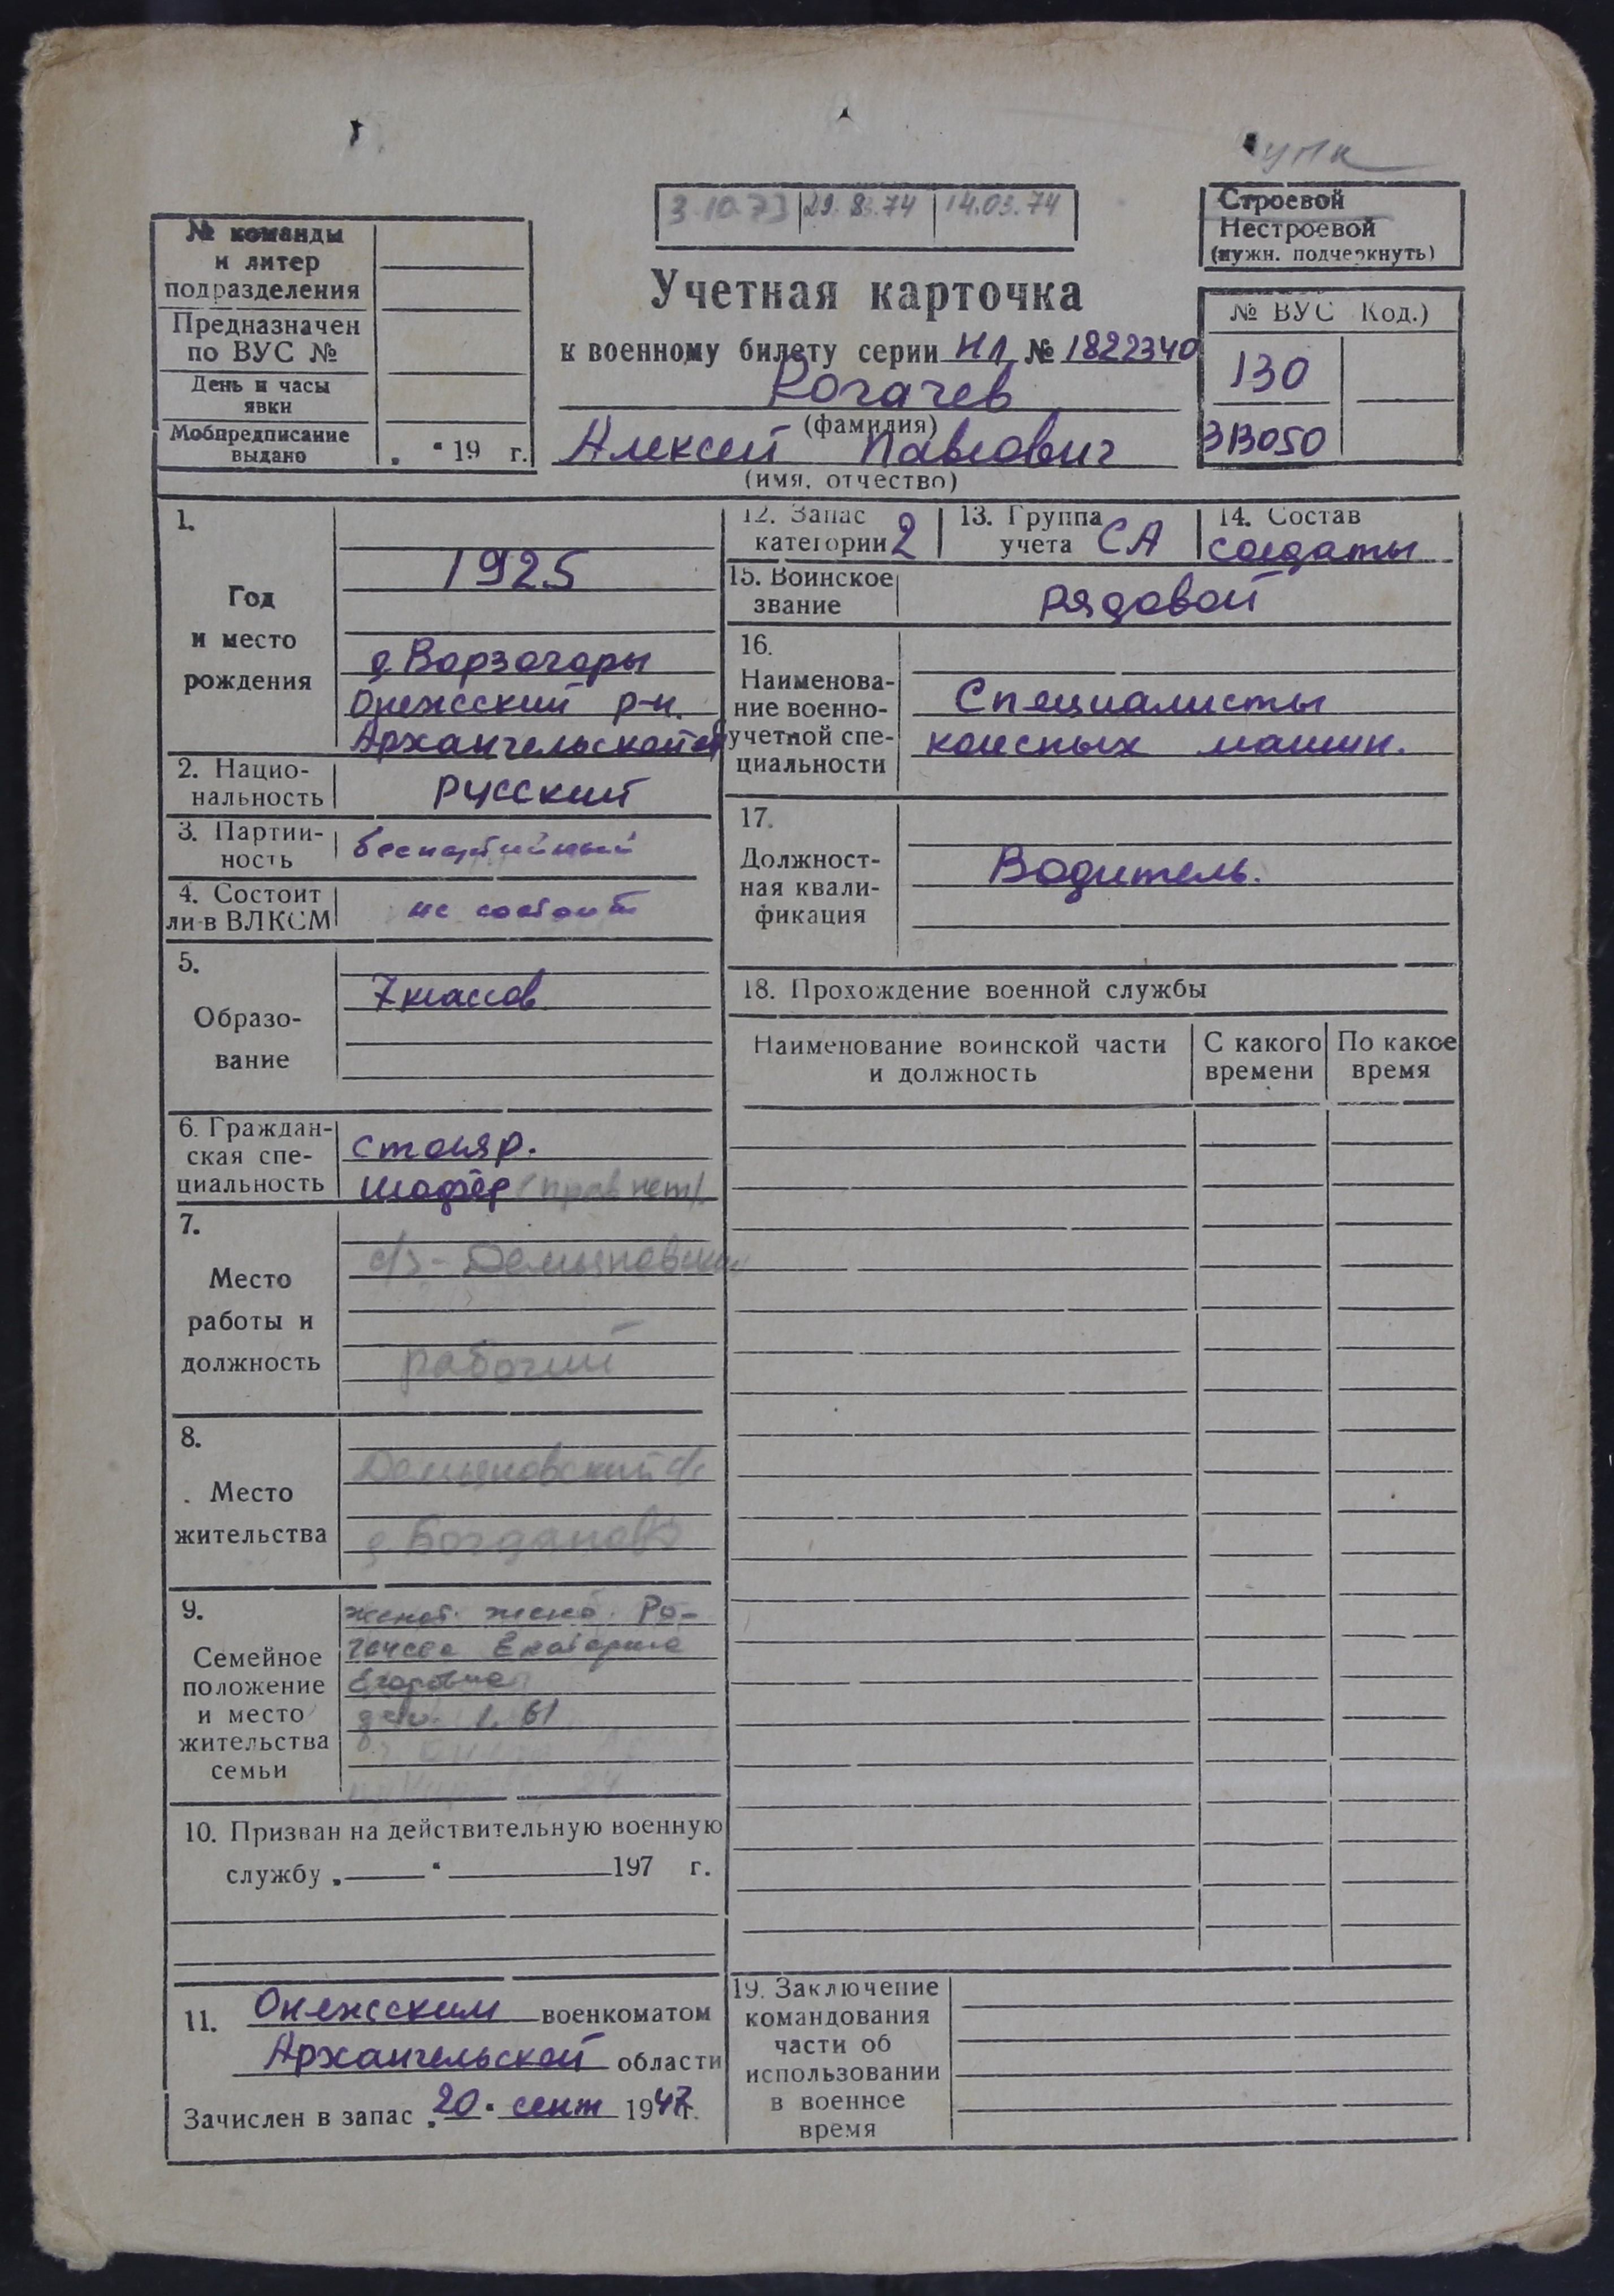 упк
3.10.73 29.8.74 14.03.74
Строевой
Нестроевой
(нужн. подчеркнуть)
№ команды
и литер
подразделения
Предназначен
по ВУС №
День и часы
явки
Мобпредписание
выдано
„ “ 19 г.
Учетная карточка
к военному билету серии НЛ № 1822340
Рогачев
(фамилия)
Алексей Павлович
(имя, отчество)
№ ВУС Код.)
130
313050
1.
Год
и место
рождения
1925
д. Ворзогоры
Онежский р-н.
Архангельской об
2. Нацио-
нальность
русский
3. Партий-
ность
беспартийный
4. Состоит
ли в ВЛКСМ
не состоит
5.
Образо-
вание
7 классов.
6. Граждан-
ская спе-
циальность
столяр.
шофёр (прав нет).
7.
Место
работы и
должность
с/з - Демьяновский
рабочий
8.
Место
жительства
Демьяновский с/с
д. Богданово
9.
Семейное
положение
и место
жительства
семьи
женат. жена. Ро-
гачева Екатерина
Егоровна
дети. 1. 61
10. Призван на действительную военную
службу „ “ 197 г.
11. Онежским военкоматом
Архангельской области
Зачислен в запас „20“ сент 1947г.
12. Запас
категории 2
13. Группа
учета СА
14. Состав
солдаты
15. Воинское
звание
рядовой
16.
Наименова-
ние военно-
учетной спе-
циальности
Специалисты
колесных машин.
17.
Должност-
ная квали-
фикация
Водитель.
18. Прохождение военной службы
Наименование воинской части
и должность
С какого
времени
По какое
время
19. Заключение
командования
части об
использовании
в военное
время